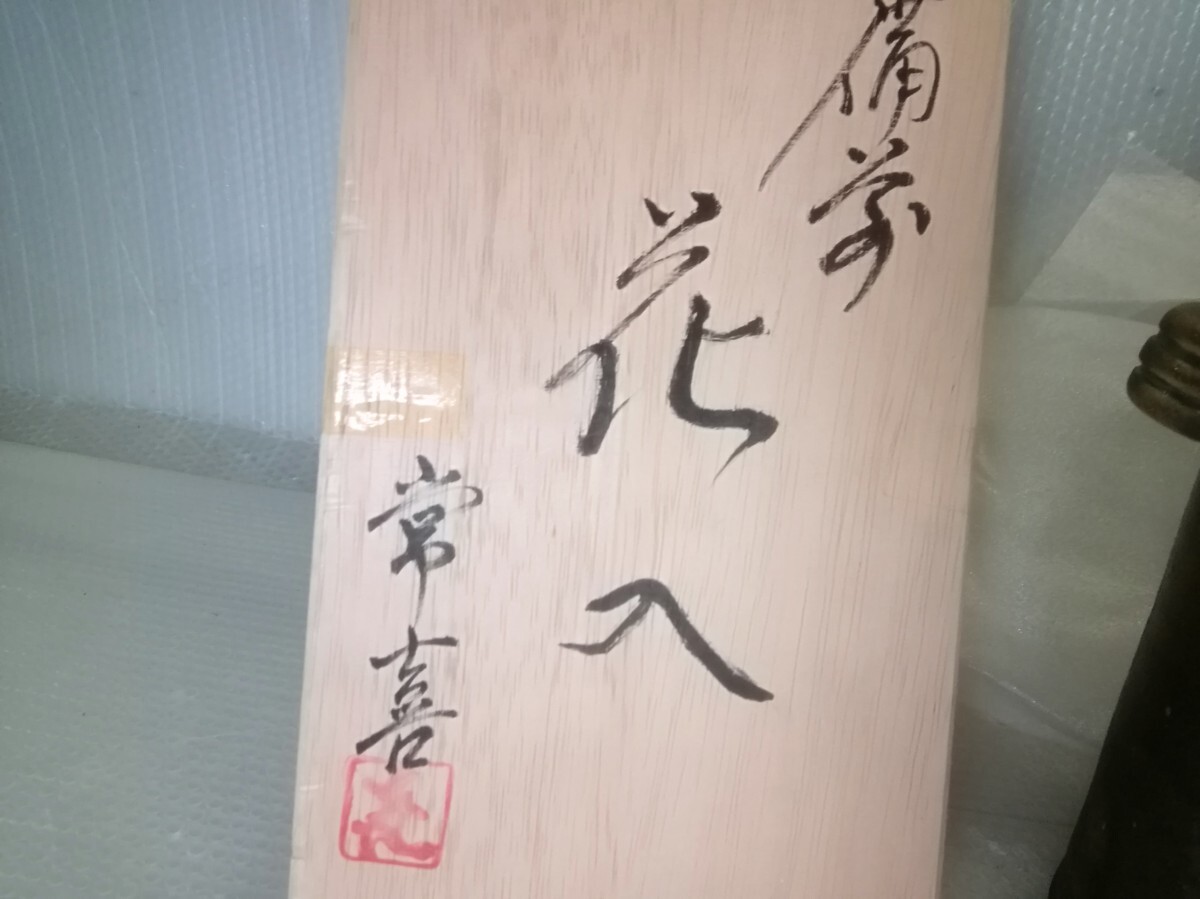 備前
花入
常喜